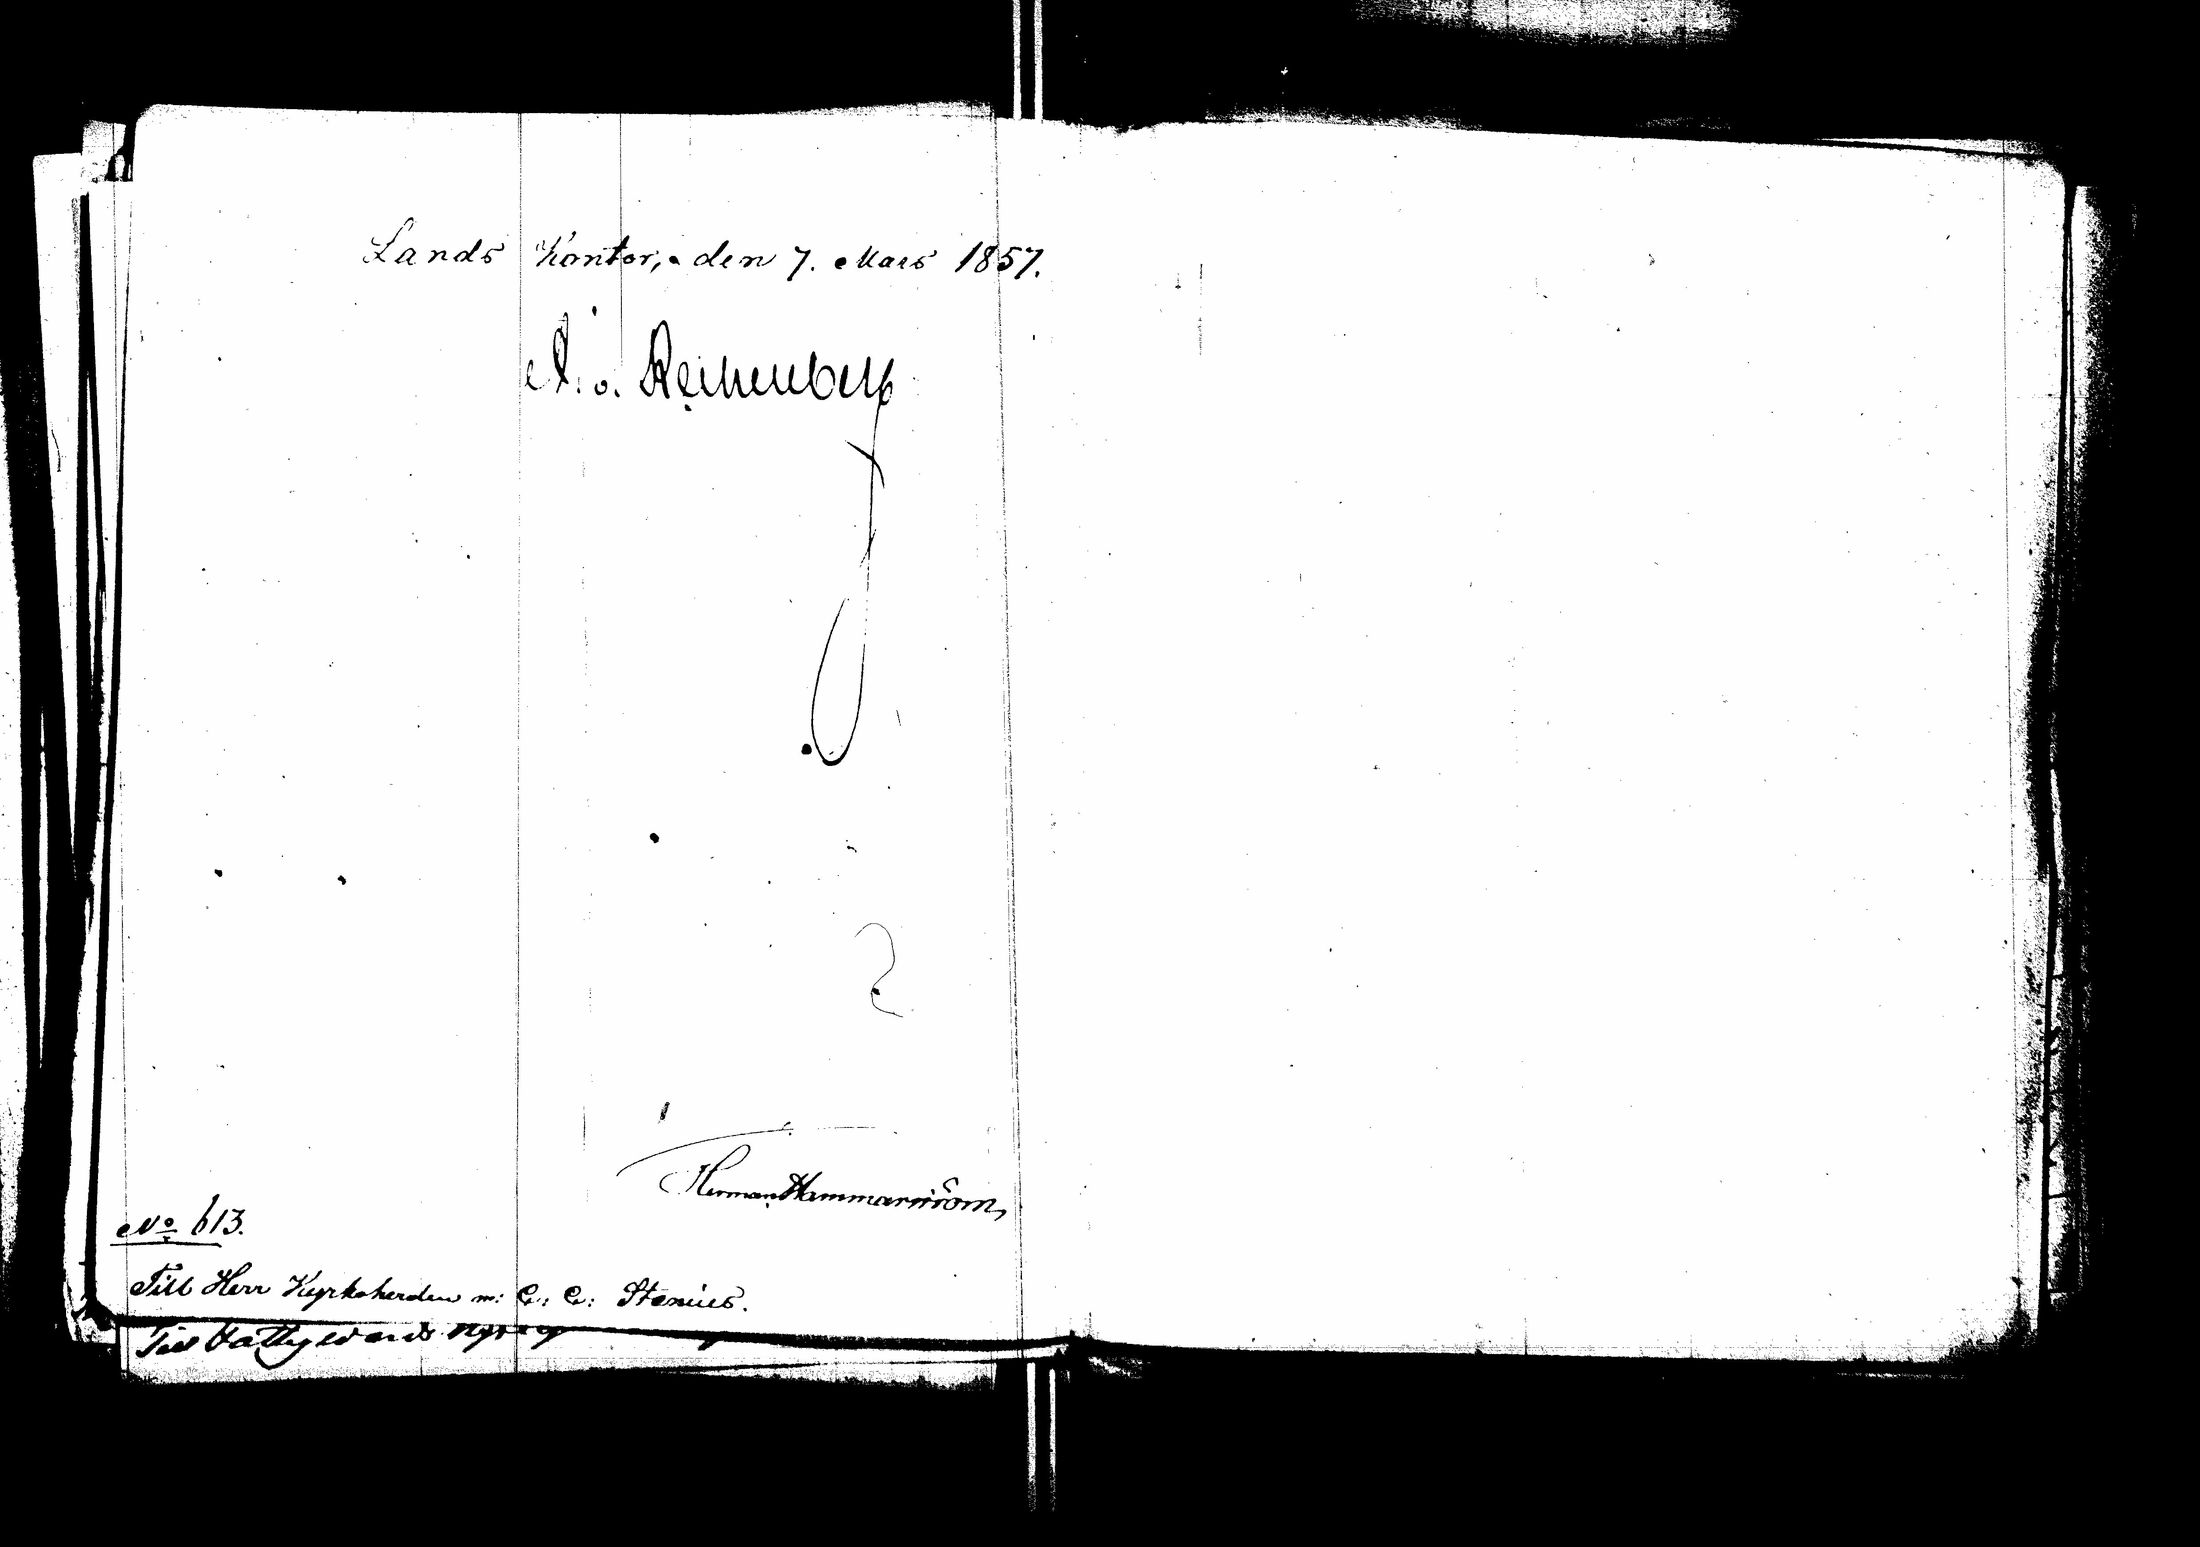 Lands Kontor, den 7. Mars 1857.
A. v.
Herman Hammarström
No 613.
Till Herr Kyrkoherden m: C: C: Stenius.
Till